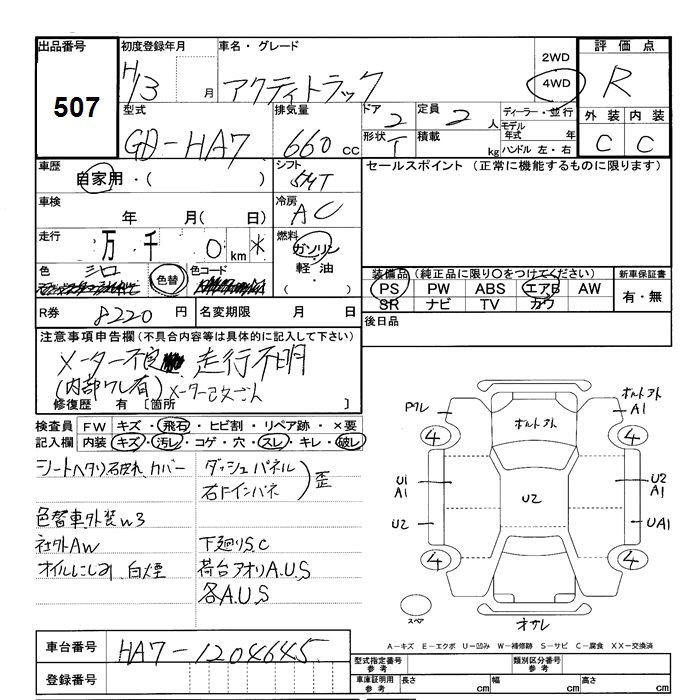 出品番号
507
初度登録年月
H13 月
車名・グレード
アクティトラック
2WD
4WD
評価点
R
外装 内装
C C
型式
GD-HA7
排気量
660 cc
ドア
2
形状
T
定員
2 人
積載 kg
ディーラー・並行
モデル年式 年
ハンドル 左・右
車歴
自家用・( )
シフト
5MT
セールスポイント (正常に機能するものに限ります)
車検
年 月( 日)
冷房
AC
走行
万 千 0 km *
燃料
ガソリン
軽油
色
シロ
色替
色コード
装備品 (純正品に限り○をつけてください)
PS PW ABS エアB AW
SR ナビ TV カワ
新車保証書
有・無
R券 8220 円
名変期限 月 日
後日品
注意事項申告欄 (不具合内容等は具体的に記入して下さい)
メーター不良 走行不明
(内部ワレ有) メーター改ざん
修復歴 有 [箇所 ]
検査員 FW キズ・飛石・ヒビ割・リペア跡・×要
記入欄 内装 キズ・汚レ・コゲ・穴・スレ・キレ・破レ
シートヘタリ破れ、カバー
ダッシュパネル
右インパネ
歪
色替車外装W3
社外AW
オイルにじみ、白煙
下廻りS.C
荷台アオリA.U.S
各A.U.S
Pクレ
ボルト外
A1
ボルト外
4
4
U1
A1
U2
U2
U2
A1
UA1
4
4
スペア
オサレ
A-キズ E-エクボ U-凹み W-補修跡 S-サビ C-腐食 XX-交換済
車台番号 HA7-1204645
登録番号
型式指定番号
参考
類別区分番号
参考
車庫証明用
参考
長さ cm 幅 cm 高さ cm